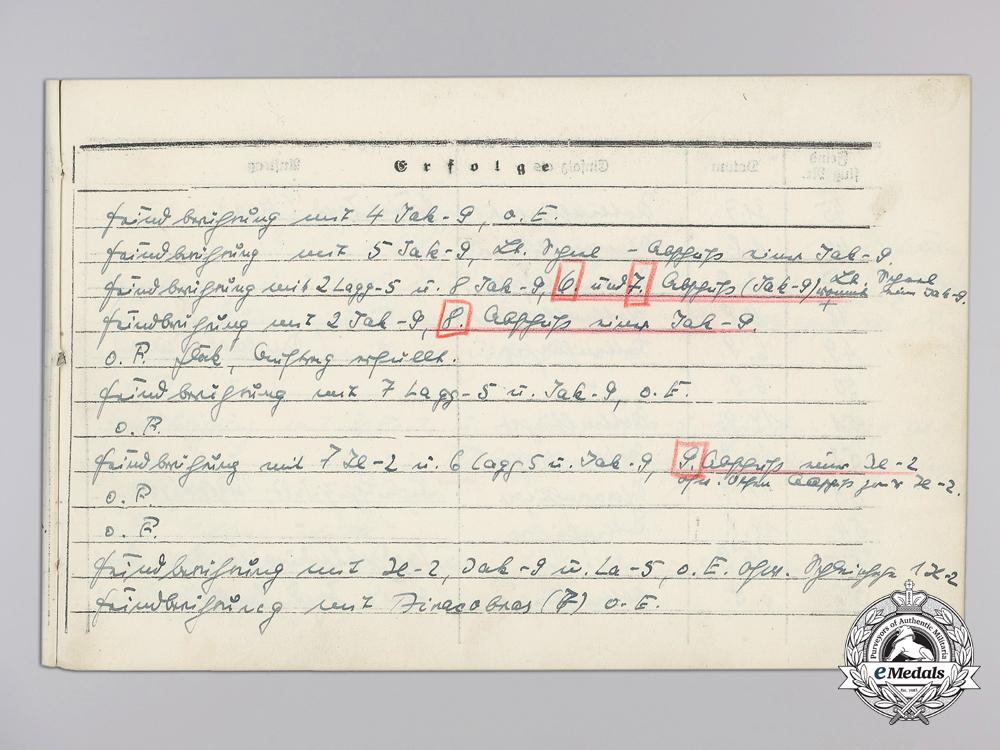 Erfolge
Feindberührung mit 4 Jak-9, o.E.
Feindberührung mit 5 Jak-9, Lt. - Abschuß einer Jak-9.
Feindberührung mit 2 Lagg-5 u. 8 Jak-9, 6. und 7. Abschuß (Jak-9) Lt.
eine Jak-9.
Feindberührung mit 2 Jak-9, 8. Abschuß einer Jak-9.
o.F. Flak, Auftrag erfüllt.
Feindberührung mit 7 Lagg-5 u. Jak-9, o.E.
o.F.
Feindberührung mit 7 Il-2 u. 6 Lagg-5 u. Jak-9, 9. Abschuß einer Il-2
Ofw. Abschuß Il-2.
o.F.
o.F.
Feindberührung mit Il-2, Jak-9 u. La-5, o.E. Ofw. 1 Il-2
Feindberührung mit Airacobras (7) o.E.
Purveyors of Authentic Militaria
eMedals